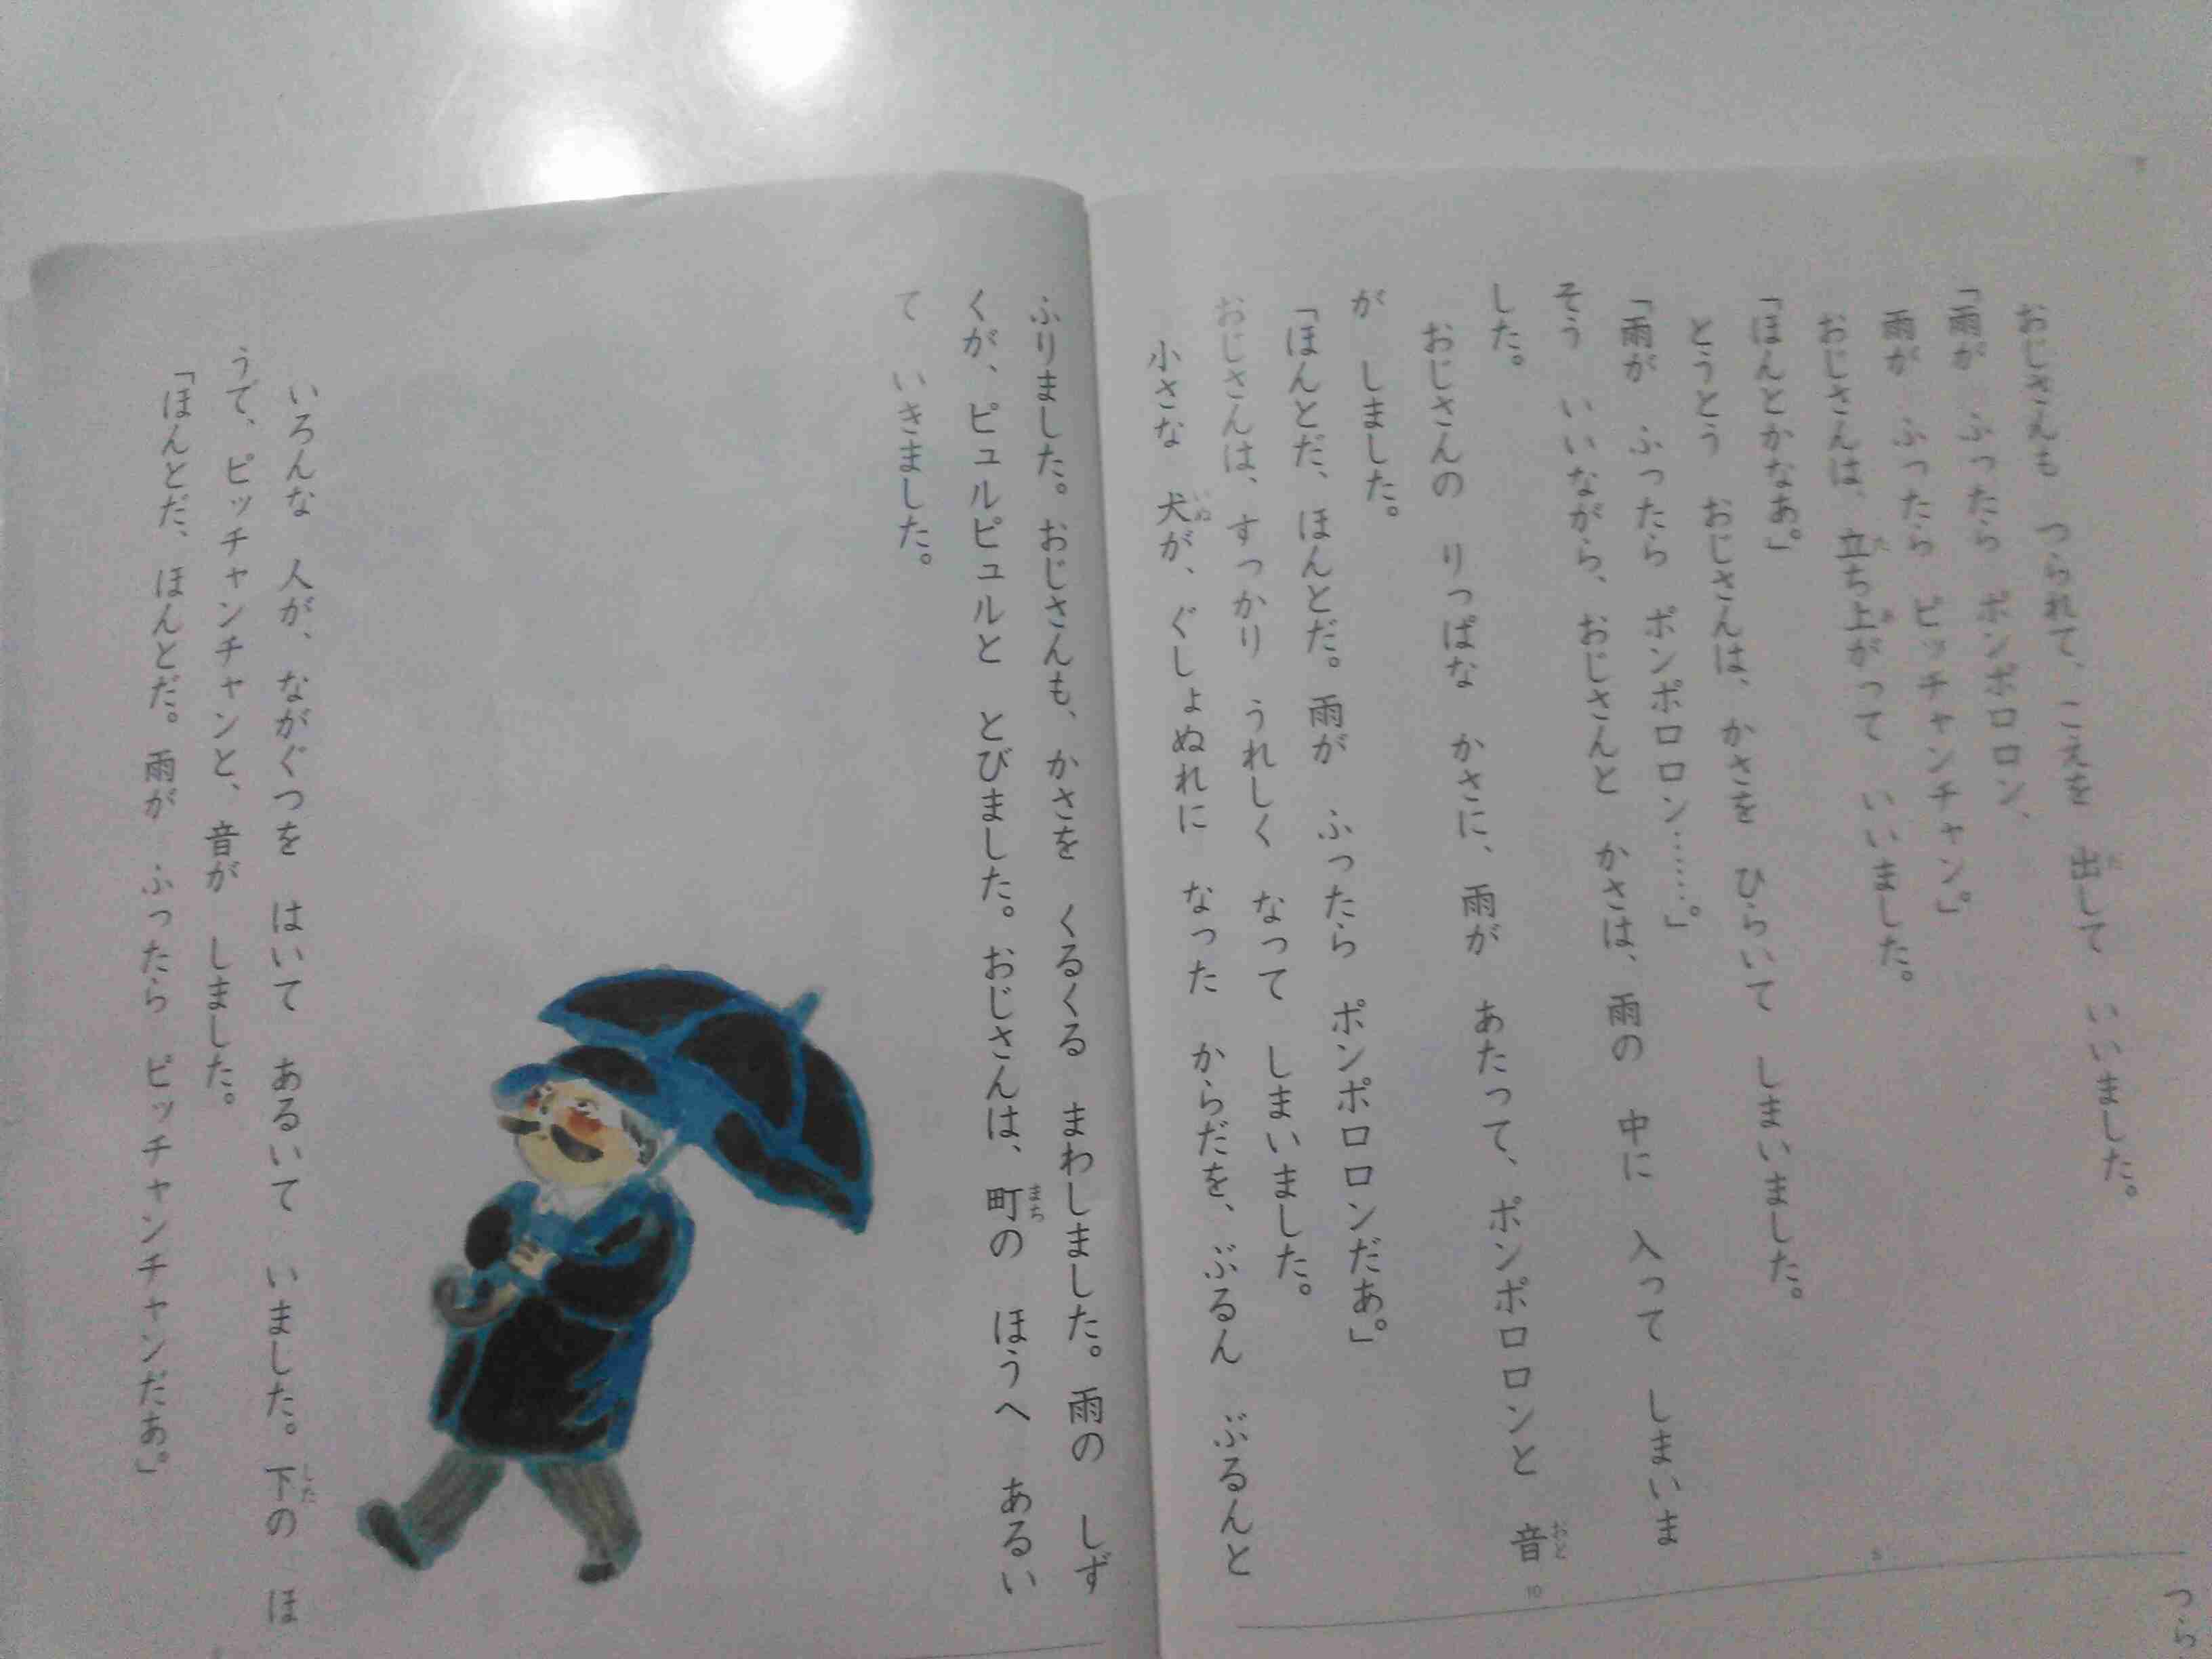 おじさんも つられて、こえを 出して いいました。
「雨が ふったら ポンポロロン、
雨が ふったら ピッチャンチャン。」
おじさんは、立ち上がって いいました。
「ほんとかなあ。」
とうとう おじさんは、かさを ひらいて しまいました。
「雨が ふったら ポンポロロン……。」
そう いいながら、おじさんと かさは、雨の 中に 入って しまいま
した。
おじさんの りっぱな かさに、雨が あたって、ポンポロロンと 音
が しました。
「ほんとだ、ほんとだ。雨が ふったら ポンポロロンだあ。」
おじさんは、すっかり うれしく なって しまいました。
小さな 犬が、ぐしょぬれに なった からだを、ぶるん ぶるんと
ふりました。おじさんも、かさを くるくる まわしました。雨の しず
くが、ピュルピュルと とびました。おじさんは、町の ほうへ あるい
て いきました。
いろんな 人が、ながぐつを はいて あるいて いました。下の ほ
うで、ピッチャンチャンと、音が しました。
「ほんとだ、ほんとだ。雨が ふったら ピッチャンチャンだあ。」
5
10
つら